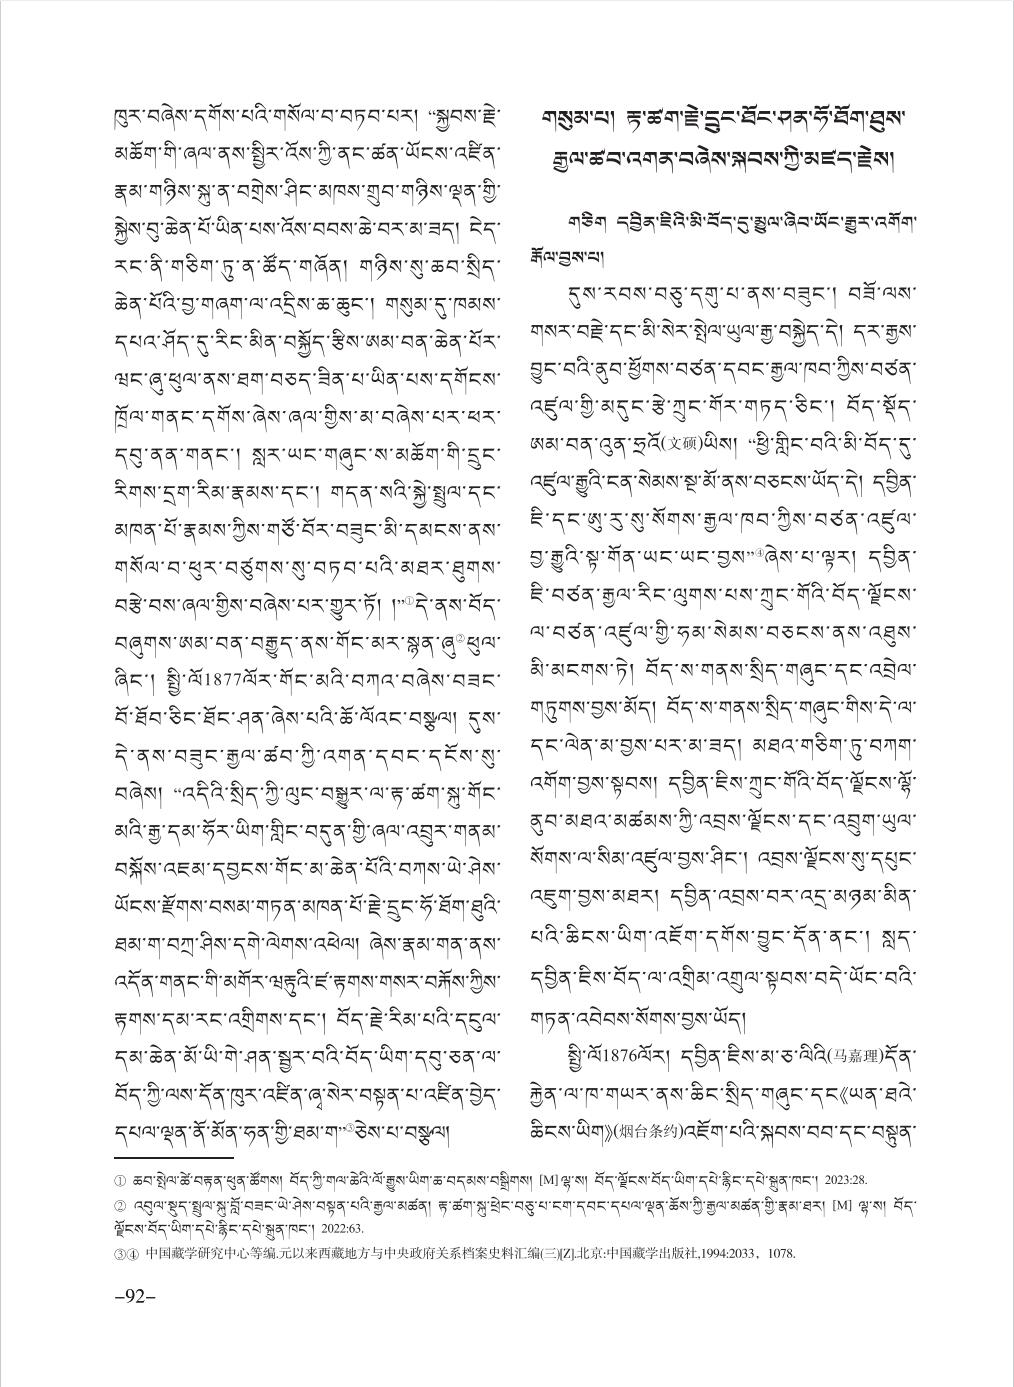 ཁུར་བཞེས་དགོས་པའི་གསོལ་བ་བཏབ་པར། “སྐྱབས་རྗེ་
མཆོག་གི་ཞལ་ནས་སྤྱིར་འོས་ཀྱི་ནང་ཚན་ཡོངས་འཛིན་
རྣམ་གཉིས་སྐུ་ན་བགྲེས་ཤིང་མཁས་གྲུབ་གཉིས་ལྡན་གྱི་
སྐྱེས་བུ་ཆེན་པོ་ཡིན་པས་འོས་བབས་ཆེ་བར་མ་ཟད། ངེད་
རང་ནི་གཅིག་ཏུ་ན་ཚོད་གཞོན། གཉིས་སུ་ཆབ་སྲིད་
ཆེན་པོའི་བྱ་གཞག་ལ་འདྲིས་ཆ་ཆུང་། གསུམ་དུ་ཁམས་
དཔའ་ཤོད་དུ་རིང་མིན་བསྐྱོད་རྩིས་ཨམ་བན་ཆེན་པོར་
ཝང་ཞུ་ཕུལ་ནས་ཐག་བཅད་ཟིན་པ་ཡིན་པས་དགོངས་
ཁྲོལ་གནང་དགོས་ཞེས་ཞལ་གྱིས་མ་བཞེས་པར་ཕར་
དབུ་ནན་གནང་། སླར་ཡང་གཞུང་ས་མཆོག་གི་དྲུང་
རིགས་དྲག་རིམ་རྣམས་དང་། གདན་སའི་སྐྱེ་སྤྲུལ་དང་
མཁན་པོ་རྣམས་ཀྱིས་གཙོ་བོར་བཟུང་མི་དམངས་ནས་
གསོལ་བ་ཕུར་བཙུགས་སུ་བཏབ་པའི་མཐར་ཐུགས་
བརྩེ་བས་ཞལ་གྱིས་བཞེས་པར་གྱུར་ཏོ། །”①དེ་ནས་བོད་
བཞུགས་ཨམ་བན་བརྒྱུད་ནས་གོང་མར་སྙན་ཞུ②ཕུལ་
ཞིང་། སྤྱི་ལོ1877ལོར་གོང་མའི་བཀའ་བཞེས་བཟང་
པོ་ཐོབ་ཅིང་ཐོང་ཤན་ཞེས་པའི་ཆོ་ལོའང་བསྩལ། དུས་
དེ་ནས་བཟུང་རྒྱལ་ཚབ་ཀྱི་འགན་དབང་དངོས་སུ་
བཞེས། “འདིའི་སྲིད་ཀྱི་ལུང་བསྒྱུར་ལ་རྟ་ཚག་སྐུ་གོང་
མའི་རྒྱ་དམ་ཧོར་ཡིག་གླིང་བདུན་གྱི་ཞལ་འབུར་གནམ་
བསྐོས་འཇམ་དབྱངས་གོང་མ་ཆེན་པོའི་བཀས་ཡེ་ཤེས་
ཡོངས་རྫོགས་བསམ་གཏན་མཁན་པོ་རྗེ་དྲུང་ཧོ་ཐོག་ཐུའི་
ཐམ་ག་བཀྲ་ཤིས་དགེ་ལེགས་འཕེལ། ཞེས་རྣམ་གན་ནས་
འདོན་གནང་གི་མགོར་ཝརྟུའི་ཛ་རྟགས་གསར་བརྐོས་ཀྱིས་
རྟགས་དམ་རང་འགྲིགས་དང་། བོད་རྗེ་རིམ་པའི་དངུལ་
དམ་ཆེན་མོ་ཡི་གེ་ཤན་སྦྱར་བའི་བོད་ཡིག་དབུ་ཅན་ལ་
བོད་ཀྱི་ལས་དོན་ཁུར་འཛིན་ཞྭ་སེར་བསྟན་པ་འཛིན་བྱེད་
དཔལ་ལྡན་ནོ་མོན་ཧན་གྱི་ཐམ་ག”③ཅེས་པ་བསྩལ།
གསུམ་པ། རྟ་ཚག་རྗེ་དྲུང་ཐོང་ཤན་ཧོ་ཐོག་ཐུས་
རྒྱལ་ཚབ་འགན་བཞེས་སྐབས་ཀྱི་མཛད་རྗེས།
གཅིག དབྱིན་ཇིའི་མི་བོད་དུ་མྱུལ་ཞིབ་ཡོང་རྒྱུར་འགོག་
རྒོལ་བྱས་པ།
དུས་རབས་བཅུ་དགུ་པ་ནས་བཟུང་། བཟོ་ལས་
གསར་བརྗེ་དང་མི་སེར་སྤེལ་ཡུལ་རྒྱ་བསྐྱེད་དེ། དར་རྒྱས་
བྱུང་བའི་ནུབ་ཕྱོགས་བཙན་དབང་རྒྱལ་ཁབ་ཀྱིས་བཙན་
འཛུལ་གྱི་མདུང་རྩེ་ཀྲུང་གོར་གཏད་ཅིང་། བོད་སྡོད་
ཨམ་བན་འུན་ཧྲའོ(文硕)ཡིས། “ཕྱི་གླིང་བའི་མི་བོད་དུ་
འཛུལ་རྒྱུའི་ངན་སེམས་སྔ་མོ་ནས་བཅངས་ཡོད་དེ། དབྱིན་
ཇི་དང་ཨུ་རུ་སུ་སོགས་རྒྱལ་ཁབ་ཀྱིས་བཙན་འཛུལ་
བྱ་རྒྱུའི་སྟ་གོན་ཡང་ཡང་བྱས”④ཞེས་པ་ལྟར། དབྱིན་
ཇི་བཙན་རྒྱལ་རིང་ལུགས་པས་ཀྲུང་གོའི་བོད་ལྗོངས་
ལ་བཙན་འཛུལ་གྱི་ཧམ་སེམས་བཅངས་ནས་འཐུས་
མི་མངགས་ཏེ། བོད་ས་གནས་སྲིད་གཞུང་དང་འབྲེལ་
གཏུགས་བྱས་མོད། བོད་ས་གནས་སྲིད་གཞུང་གིས་དེ་ལ་
དང་ལེན་མ་བྱས་པར་མ་ཟད། མཐའ་གཅིག་ཏུ་བཀག་
འགོག་བྱས་སྟབས། དབྱིན་ཇིས་ཀྲུང་གོའི་བོད་ལྗོངས་ལྷོ་
ནུབ་མཐའ་མཚམས་ཀྱི་འབྲས་ལྗོངས་དང་འབྲུག་ཡུལ་
སོགས་ལ་སིམ་འཛུལ་བྱས་ཤིང་། འབྲས་ལྗོངས་སུ་དཔུང་
འཇུག་བྱས་མཐར། དབྱིན་འབྲས་བར་འདྲ་མཉམ་མིན་
པའི་ཆིངས་ཡིག་འཇོག་དགོས་བྱུང་དོན་ནང་། སླད་
དབྱིན་ཇིས་བོད་ལ་འགྲིམ་འགྲུལ་སྟབས་བདེ་ཡོང་བའི་
གཏན་འབེབས་སོགས་བྱས་ཡོད།
སྤྱི་ལོ1876ལོར། དབྱིན་ཇིས་མ་ཅ་ལིའི(马嘉理)དོན་
རྐྱེན་ལ་ཁ་གཡར་ནས་ཆིང་སྲིད་གཞུང་དང《ཡན་ཐའེ་
ཆིངས་ཡིག》(烟台条约)འཇོག་པའི་སྐབས་བབ་དང་བསྟུན་
① ཆབ་སྤེལ་ཚེ་བརྟན་ཕུན་ཚོགས། བོད་ཀྱི་གལ་ཆེའི་ལོ་རྒྱུས་ཡིག་ཆ་བདམས་བསྒྲིགས། [M] ལྷ་ས། བོད་ལྗོངས་བོད་ཡིག་དཔེ་རྙིང་དཔེ་སྐྲུན་ཁང་། 2023:28.
② འབུལ་སྡུད་སྤྲུལ་སྐུ་བློ་བཟང་ཡེ་ཤེས་བསྟན་པའི་རྒྱལ་མཚན། རྟ་ཚག་སྐུ་ཕྲེང་བཅུ་པ་ངག་དབང་དཔལ་ལྡན་ཆོས་ཀྱི་རྒྱལ་མཚན་གྱི་རྣམ་ཐར། [M] ལྷ་ས། བོད་
ལྗོངས་བོད་ཡིག་དཔེ་རྙིང་དཔེ་སྐྲུན་ཁང་། 2022:63.
③④ 中国藏学研究中心等编.元以来西藏地方与中央政府关系档案史料汇编(三)[Z].北京:中国藏学出版社,1994:2033，1078.
-92-